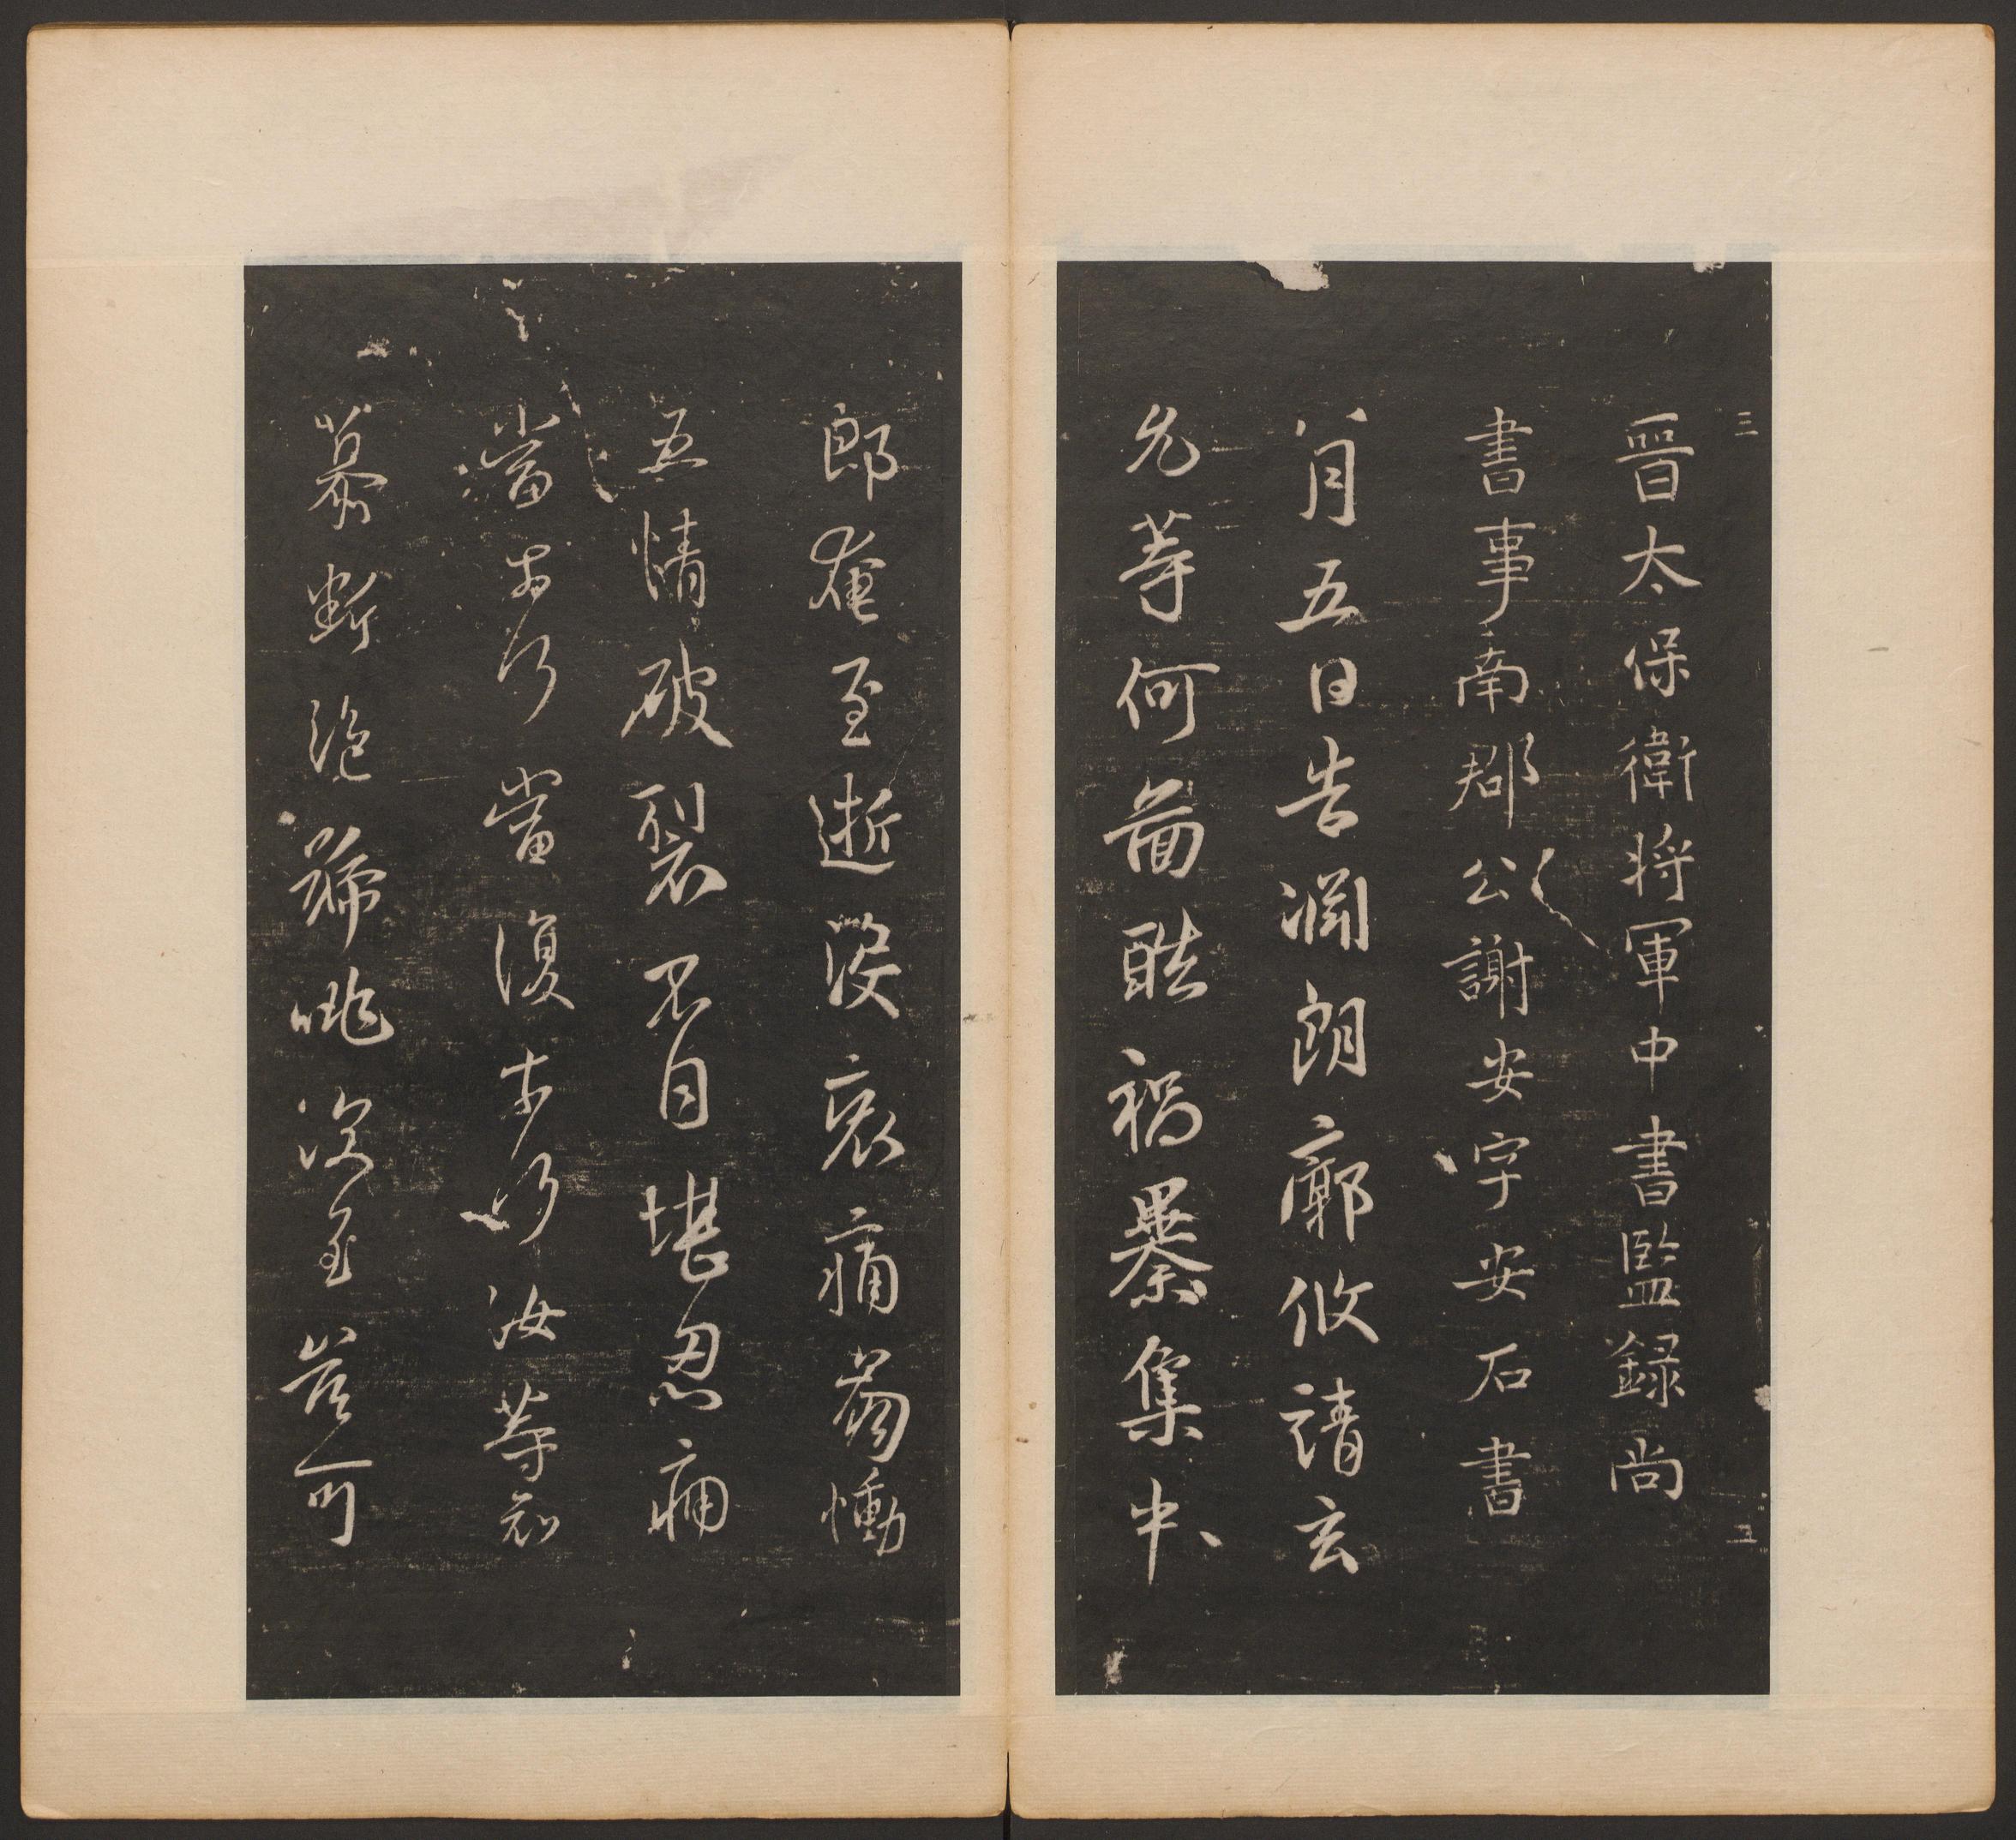 三
晉太保衛將軍中書監錄尚
書事南郡公謝安字安石書
八月五日告淵朗廓攸靖玄
允等何圖酷禍暴集中
郎奄至逝沒哀痛崩慟
五情破裂不自堪忍痛
當奈何當復奈何汝等哀
慕斷絕號咷深至豈可
五